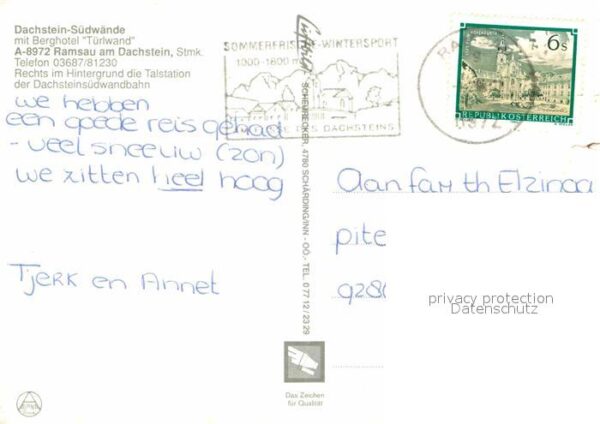 Dachstein-Südwände
mit Berghotel "Türlwand"
A-8972 Ramsau am Dachstein, Stmk.
Telefon 03687/81230
Rechts im Hintergrund die Talstation
der Dachsteinsüdwandbahn
we hebben
een goede reis gehad
- veel sneeuw (zon)
we zitten heel hoog
Tjerk en Annet
SOMMERFRISCHE-WINTERSPORT
1000-1600 m
DES DACHSTEINS
SCHERNBECKER, 4780 SCHÄRDING/INN - OÖ. - TEL. 077 12/23 29
Das Zeichen
für Qualität
8972
6s
REPUBLIK ÖSTERREICH
Aan fam th Elzinga
pite
928
privacy protection
Datenschutz